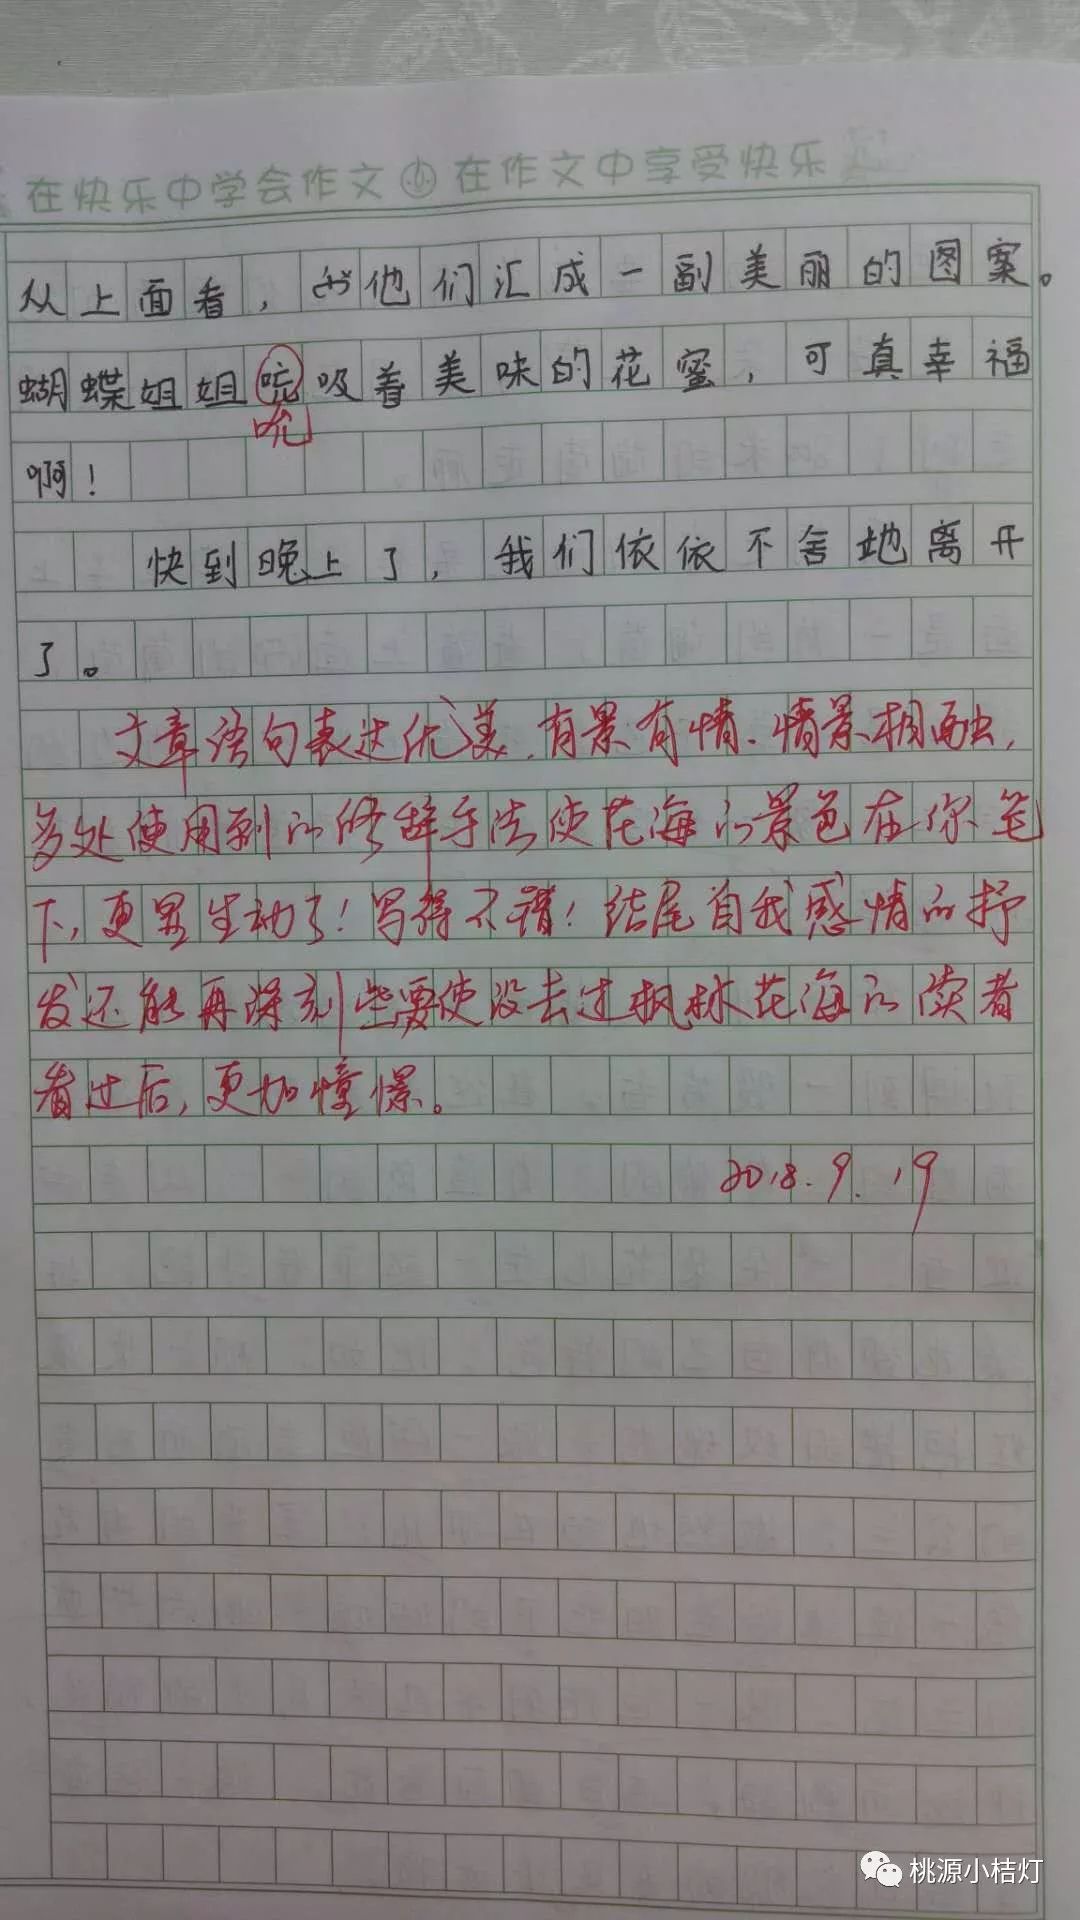 在快乐中学会作文 在作文中享受快乐
从上面看，他们汇成一副美丽的图案。
蝴蝶姐姐吮吸着美味的花蜜，可真幸福
吮
啊！
快到晚上了，我们依依不舍地离开
了。
文章语句表达优美，有景有情、情景相融，
多处使用到的修辞手法使花海的景色在你笔
下，更显生动了！写得不错！结尾自我感情的抒
发还能再深刻些，要使没去过枫林花海的读者
看过后，更加憧憬。
2018.9.19
桃源小桔灯